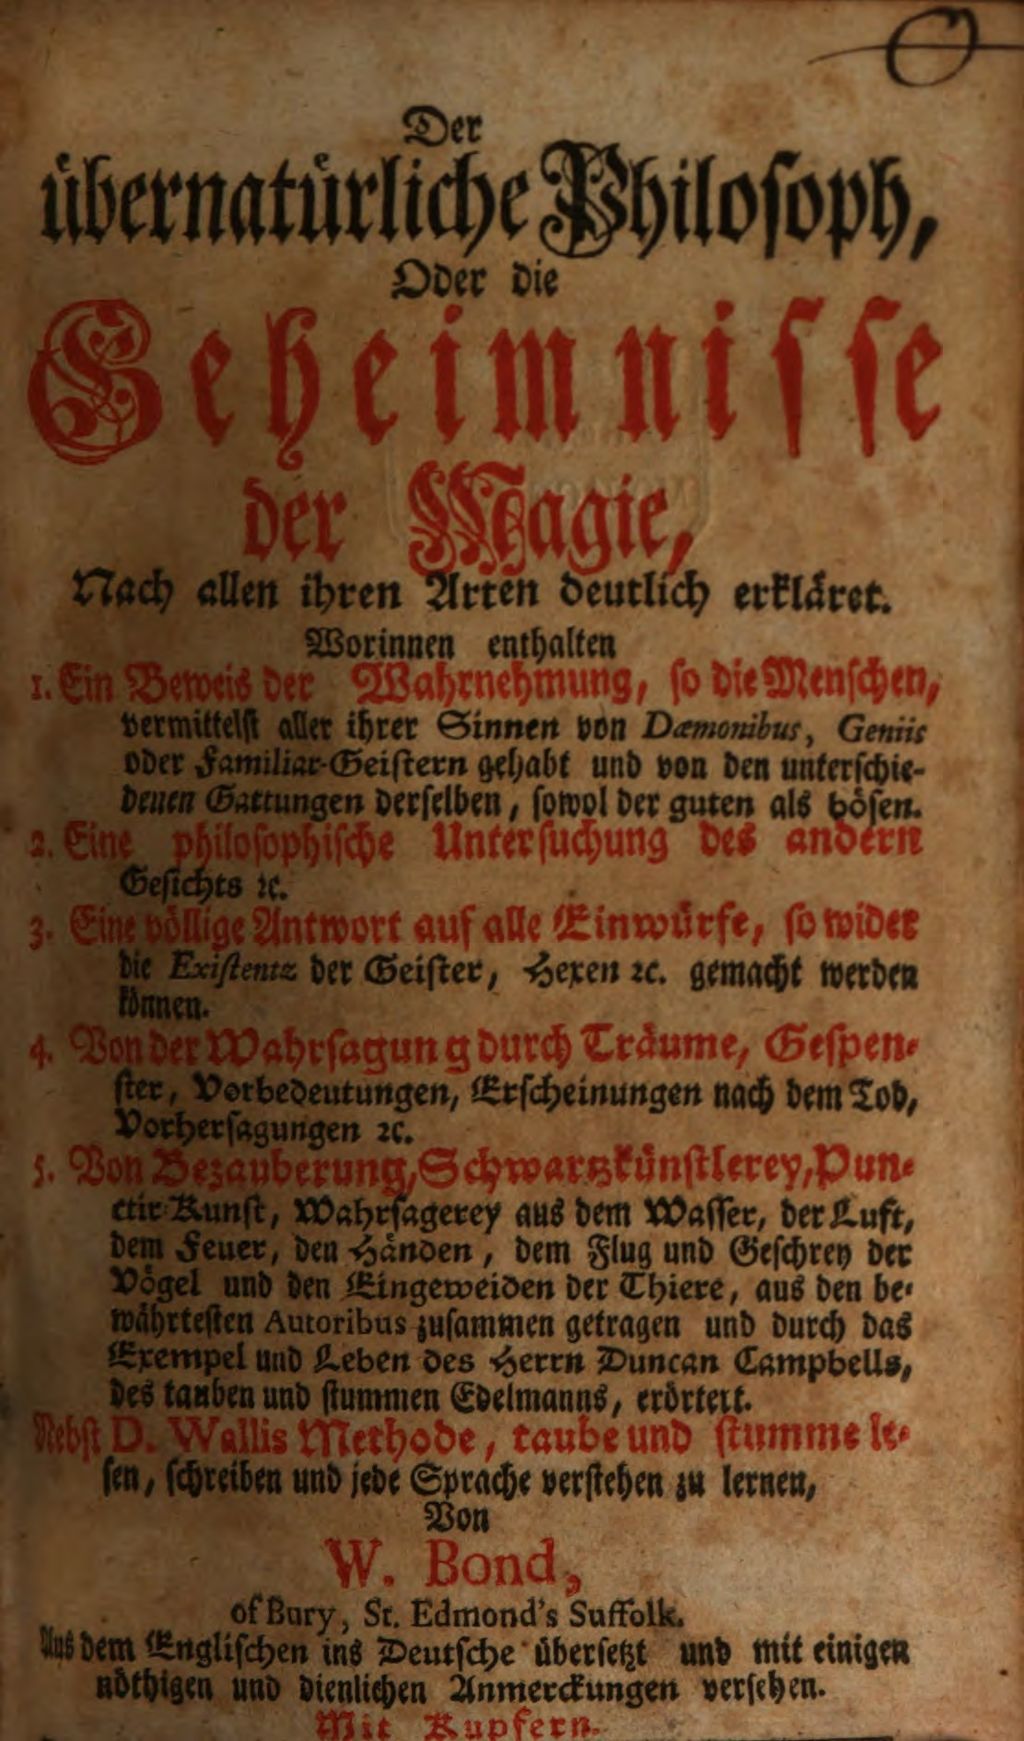 Der
übernatürliche Philosoph,
Oder die
Geheimnisse
der Magie,
Nach allen ihren Arten deutlich erkläret.
Worinnen enthalten
1. Ein Beweis der Wahrnehmung, so die Menschen,
vermittelst aller ihrer Sinnen von Dæmonibus, Geniis
oder Familiar-Geistern gehabt und von den unterschie-
denen Gattungen derselben, sowol der guten als bösen.
2. Eine philosophische Untersuchung des andern
Gesichts ꝛc.
3. Eine völlige Antwort auf alle Einwürfe, so wider
die Existentz der Geister, Hexen ꝛc. gemacht werden
können.
4. Von der Wahrsagung durch Träume, Gespen-
ster, Vorbedeutungen, Erscheinungen nach dem Tod,
Vorhersagungen ꝛc.
5. Von Bezauberung, Schwartzkünstlerey, Pun-
ctir-Kunst, Wahrsagerey aus dem Wasser, der Luft,
dem Feuer, den Händen, dem Flug und Geschrey der
Vögel und den Eingeweiden der Thiere, aus den be-
währtesten Autoribus zusammen getragen und durch das
Exempel und Leben des Herrn Duncan Campbells,
des tauben und stummen Edelmanns, erörtert.
Nebst D. Wallis Methode, taube und stumme le-
sen, schreiben und jede Sprache verstehen zu lernen,
Von
W. Bond,
of Bury, St. Edmond's Suffolk.
Aus dem Englischen ins Deutsche übersetzt und mit einigen
nöthigen und dienlichen Anmerckungen versehen.
Mit Kupfern.